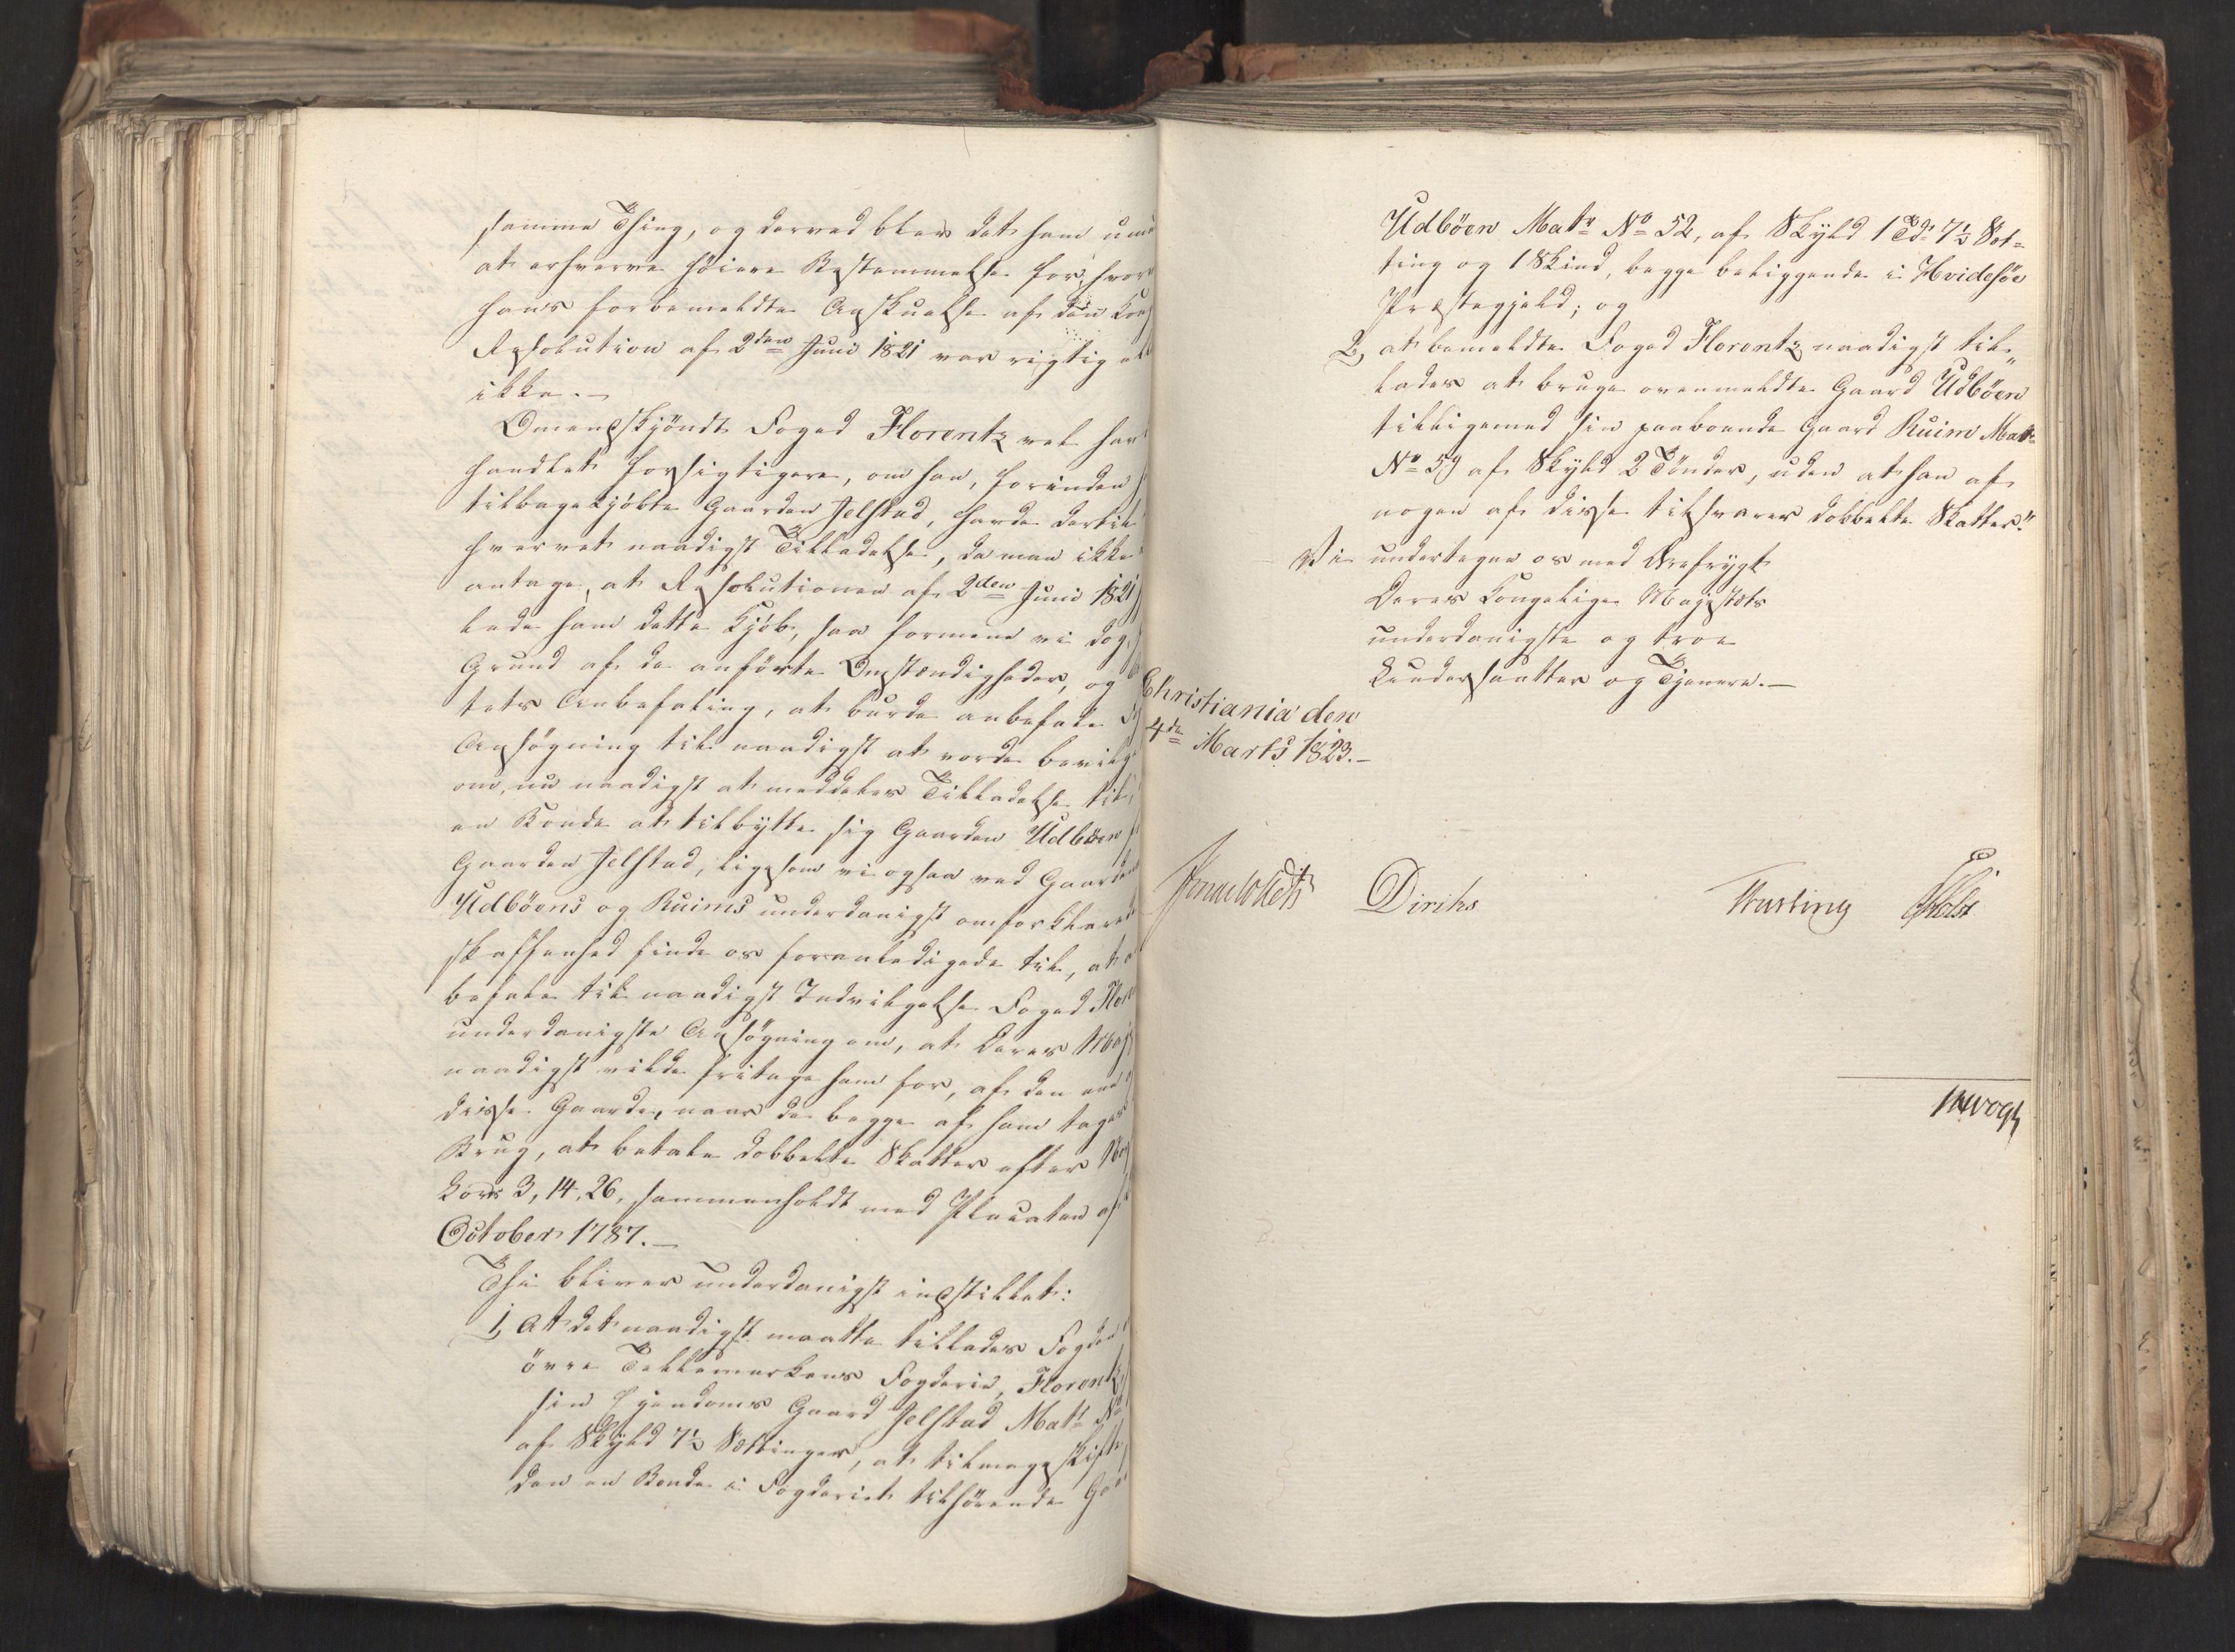 samme Thing, og derved blev det ham
at erhverve höiere Bestemmelse for, hvor
hans forbemeldte Anskuelse af den
Resolution af 2den Juni 1821 var rigtig
ikke. —
Omendskjöndt Foged Florentz vel
handlet forsigtigere, om han, forinden
tilbagekjöbte Gaarden Jelstad, havde dertil
hvervet naadigst Tilladelse, da man ikke
antage, at Resolutionen af 2den Juni 1821
lade ham dette Kjöb, saa formene vi dog,
Grund af de anförte Omstændigheder, og
tets Anbefaling, at burde anbefale
Ansögning til naadigst at vorde
om, nu naadigst at meddeles Tilladelse til,
en Bonde at tilbytte sig Gaarden Udböen
Gaarden Jelstad, ligesom vi ogsaa ved
Udböens og Ruims underdanigst omforklarede
skaffenhed finde os foranledigede til, at
befale til naadigst Indvilgelse Foged
underdanigste Ansögning om, at Deres
naadigst vilde fritage ham for, af den
disse Gaarde, naar de begge af ham
Brug, at betale dobbelte Skatter efter
Lovs 3, 14, 26, sammenholdt med Placaten af
October 1787. —
Thi bliver underdanigst indstillet:
1, At det naadigst maatte tillades
övre Tellemarkens Fogderie, Florentz,
sin Eiendoms Gaard Jelstad Matr No
af Skyld 7½ Sættinger, at
den en Bonde i Fogderiet tilhörende
Udböen Matr No 52, af Skyld 1 Td 7½ Set=
ting og 1 Skind, begge beliggende i Hvidesöe
Præstegjeld; og
2, at bemeldte Foged Florentz naadigst til„
lades at bruge ovenmeldte Gaard Udböen
tilligemed sin paaboende Gaard Ruim Matr
No 59 af Skyld 2 Tönder, uden at han af
nogen af disse tilsvarer dobbelte Skatter."
Vi undertegne os med Ærefrygt
Deres Kongelige Majestæts
underdanigste og troe
Undersaatter og Tjenere. —
Christiania den
4de Marts 1823. —
Diriks
Holst
Krogh